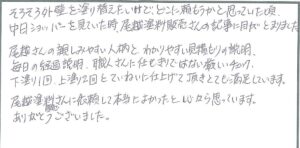 そろそろ外壁を塗り替えたいけど、どこに頼もうかと思っていた頃
中日ショッパーを見ていた時、尾越塗料販売さんの記事に目がとまりました
尾越さんの親しみやすい人柄と、わかりやすい見積もりの説明、
毎日の経過説明、職人さんに任せきりではない厳しいチェック、
下塗り1回、上塗り2回とていねいに仕上げて頂きとても満足しています。
尾越塗料さんに依頼して本当によかったと、心から思っています。
ありがとうございました。